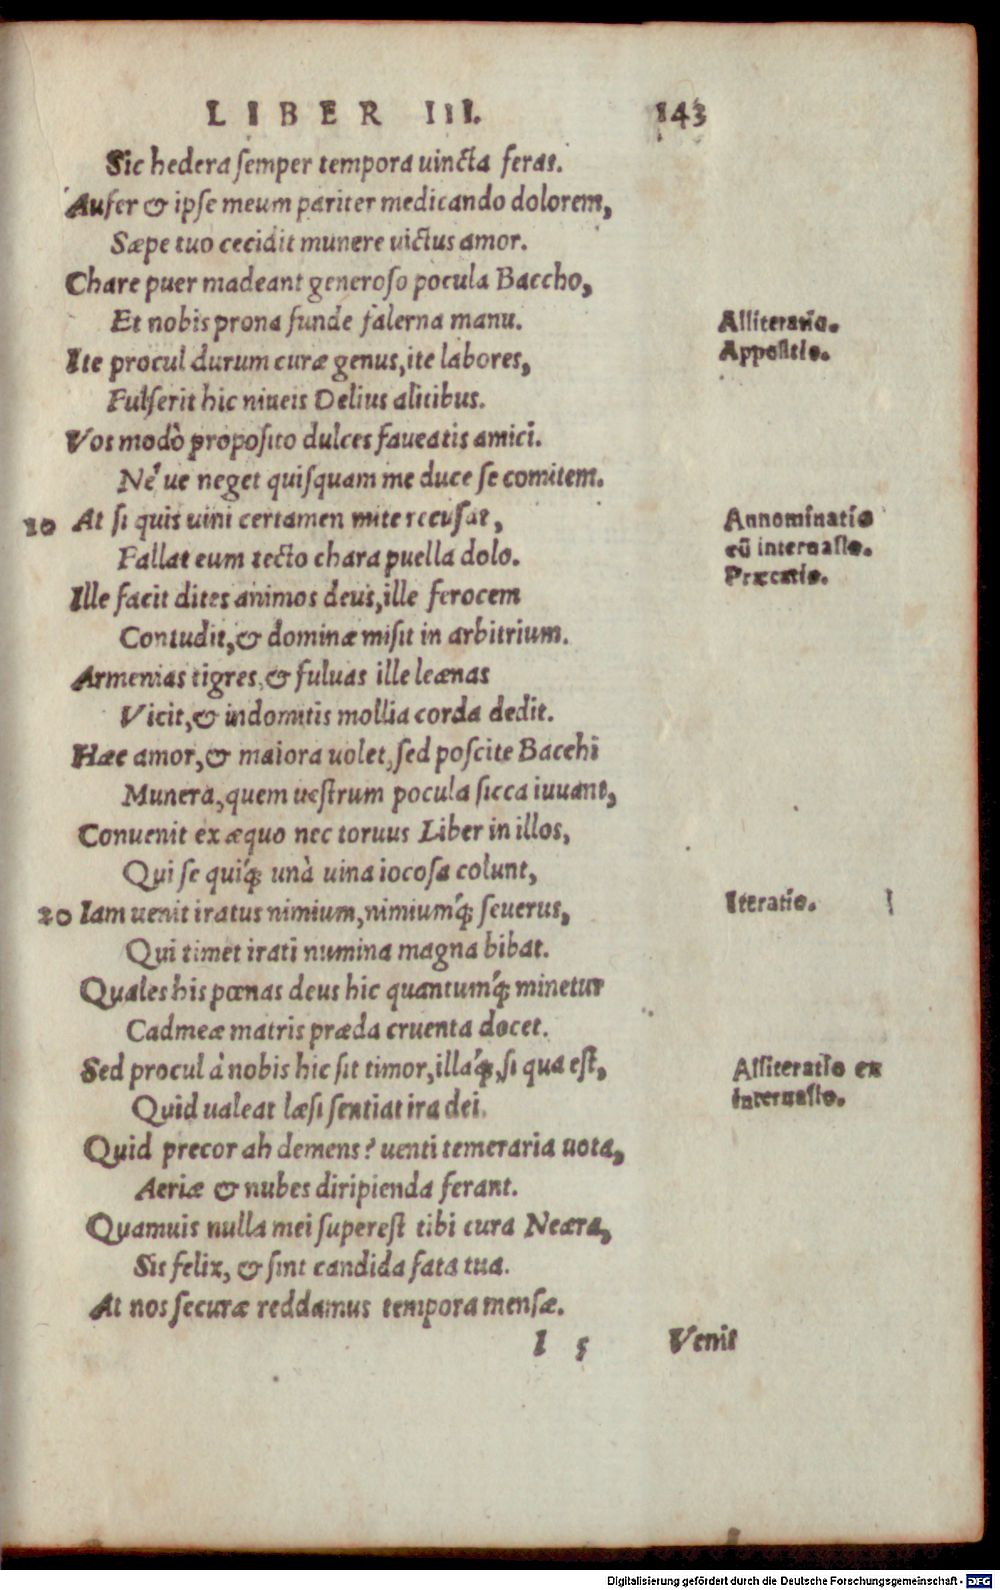 LIBER III. 143
Sic hedera semper tempora uincta feras.
Aufer & ipse meum pariter medicando dolorem,
Sæpe tuo cecidit munere uictus amor.
Chare puer madeant generoso pocula Baccho,
Et nobis prona funde falerna manu.
Alliteratio.
Ite procul durum curæ genus, ite labores,
Appositio.
Fulserit hic niueis Delius alitibus.
Vos modò proposito dulces faueatis amici.
Né ue neget quisquam me duce se comitem.
10 At si quis uini certamen mite recusat,
Annominatio
Fallat eum tecto chara puella dolo.
cū interuallo.
Præcatio.
Ille facit dites animos deus, ille ferocem
Contudit, & dominæ misit in arbitrium.
Armenias tigres, & fuluas ille leænas
Vicit, & indomitis mollia corda dedit.
Hæc amor, & maiora uolet, sed poscite Bacchi
Munera, quem uestrum pocula sicca iuuant,
Conuenit ex æquo nec toruus Liber in illos,
Qui se quíq; unà uina iocosa colunt,
20 Iam uenit iratus nimium, nimiumq́; seuerus,
Iteratio.
Qui timet irati numina magna bibat.
Quales his pœnas deus hic quantumq́; minetur
Cadmeæ matris præda cruenta docet.
Sed procul à nobis hic sit timor, illaq́;, si qua est,
Alliteratio ex
Quid ualeat læsi sentiat ira dei.
interuallo.
Quid precor ah demens? uenti temeraria uota,
Aeriæ & nubes diripienda ferant.
Quamuis nulla mei superest tibi cura Neæra,
Sis felix, & sint candida fata tua.
At nos securæ reddamus tempora mensæ.
I 5 Venit
Digitalisierung gefördert durch die Deutsche Forschungsgemeinschaft - DFG